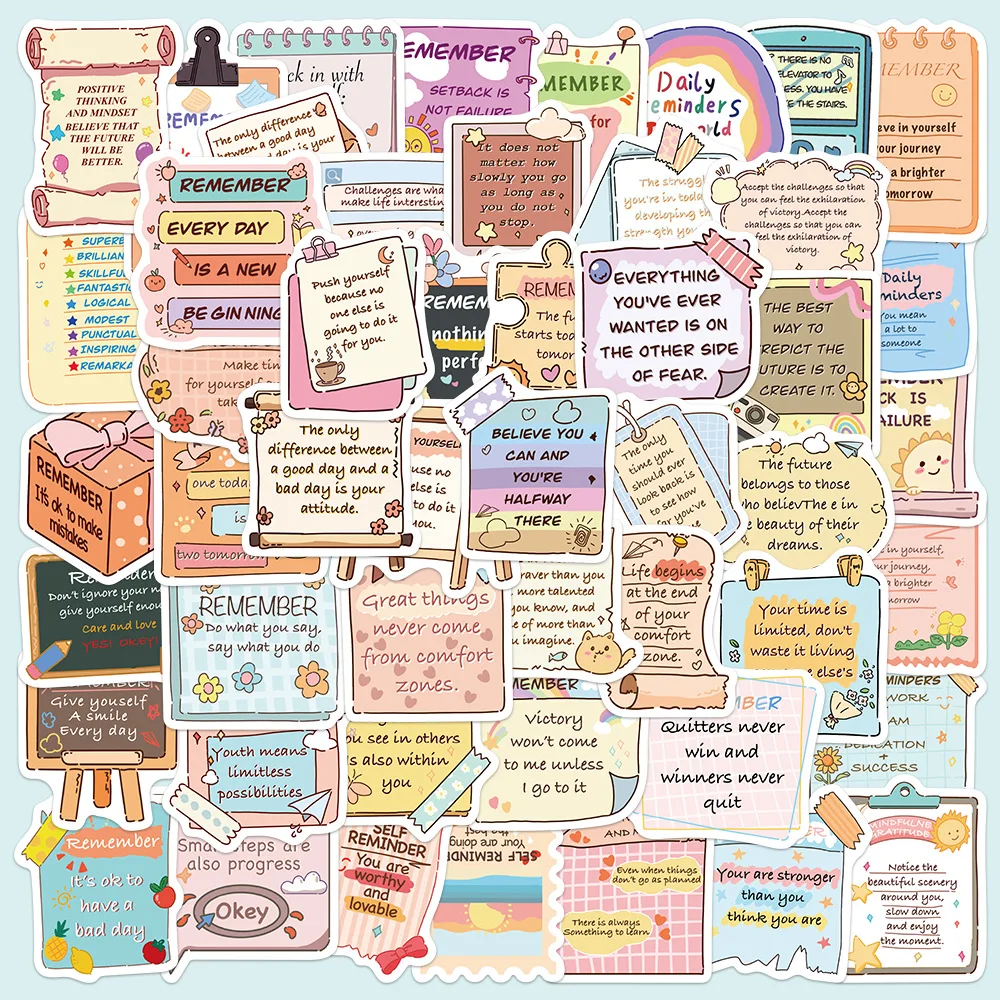 POSITIVE
THINKING
AND MINDSET
BELIEVE THAT
THE FUTURE
WILL BE
BETTER.
ck in with
EMEMBER
SETBACK IS
NOT FAILURE
MEMBER
for
Daily
eminders
THERE IS NO
ELEVATOR TO
ESS. YOU HAVE
E THE STAIRS.
EMBER
eve in yourself
your journey
a brighter
omorrow
The only difference
between a good day
d is your
It does not
matter how
slowly you go
as long as
you do not
stop.
REMEMBER
EVERY DAY
IS A NEW
BE GIN NING
Challenges are wha
make life interestin
The struggl
you're in toda
developing th
strength you
Accept the challenges so that
you can feel the exhilaration
of victory.Accept the
challenges so that you can
feel the exhilaration of
victory.
SUPERB
BRILLIAN
SKILLFU
FANTASTIC
LOGICAL
MODEST
PUNCTUAL
INSPIRING
REMARKA
Push yourself
because no
one else is
going to do it
for you.
REMEM
nothin
perf
REMEM
The fu
starts toda
tomor
EVERYTHING
YOU'VE EVER
WANTED IS ON
THE OTHER SIDE
OF FEAR.
THE BEST
WAY TO
REDICT THE
UTURE IS TO
CREATE IT.
Daily
minders
ou mean
a lot to
someone
Make tim
for yourself
tak
CK IS
AILURE
REMEMBER
It's ok to make
mistakes
one toda
is
two tomorrow
The only
difference between
a good day and a
bad day is your
attitude.
YOURSELF
use no
else is
to do it
you.
BELIEVE YOU
CAN AND
YOU'RE
HALFWAY
THERE
The only
time you
should ever
look back is
to see how
far you've
The future
belongs to those
ho believThe e in
e beauty of their
dreams.
Don't ignore your n
give yourself enou
care and love
YES! OKEY!
REMEMBER
Do what you say,
say what you do
Great things
never come
from comfort
zones.
raver than you
more talented
you know, and
e of more than
u imagine.
Life begins
at the end
of your
comfort
zone.
Your time is
limited, don't
waste it living
e else's
in yourself,
ur journey,
a brighter
morrow
Give youself
A smile
Every day
Youth means
limitless
possibilities
ou see in others
s also within
you
EMBER
Victory
won't come
to me unless
I go to it
MBER
Quitters never
win and
winners never
quit
MINDERS
WORK
AM
DEDICATION
+
SUCCESS
Remember
It's ok to
have a
bad day
Small steps are
also progress
Okey
SELF
REMINDER
You are
worthy
and
lovable
You are doing
the best
SELF REMIND
Even when things
don't go as planned
There is always
Something to learn
Your are stronger
than you
think you are
MINDFULNE
GRATITUDE
Notice the
beautiful scenery
around you,
slow down
and enjoy
the moment.